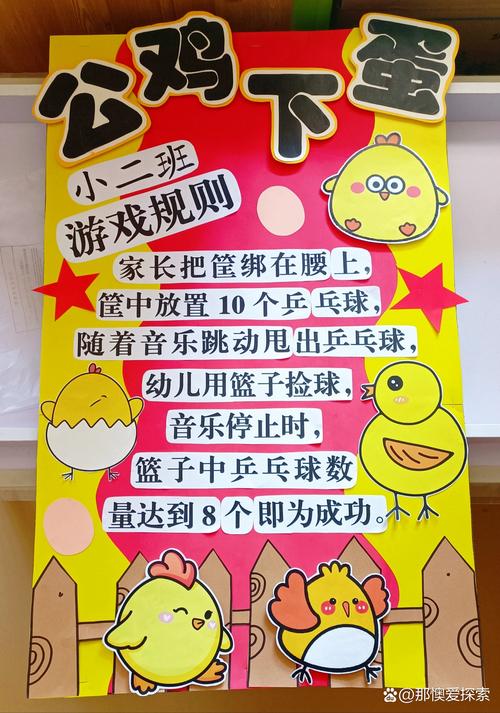 公鸡下蛋
小二班
游戏规则
家长把筐绑在腰上，
筐中放置10个乒乓球，
随着音乐跳动甩出乒乓球，
幼儿用篮子捡球，
音乐停止时，
篮子中乒乓球数
量达到8个即为成功。
@那懊爱探索